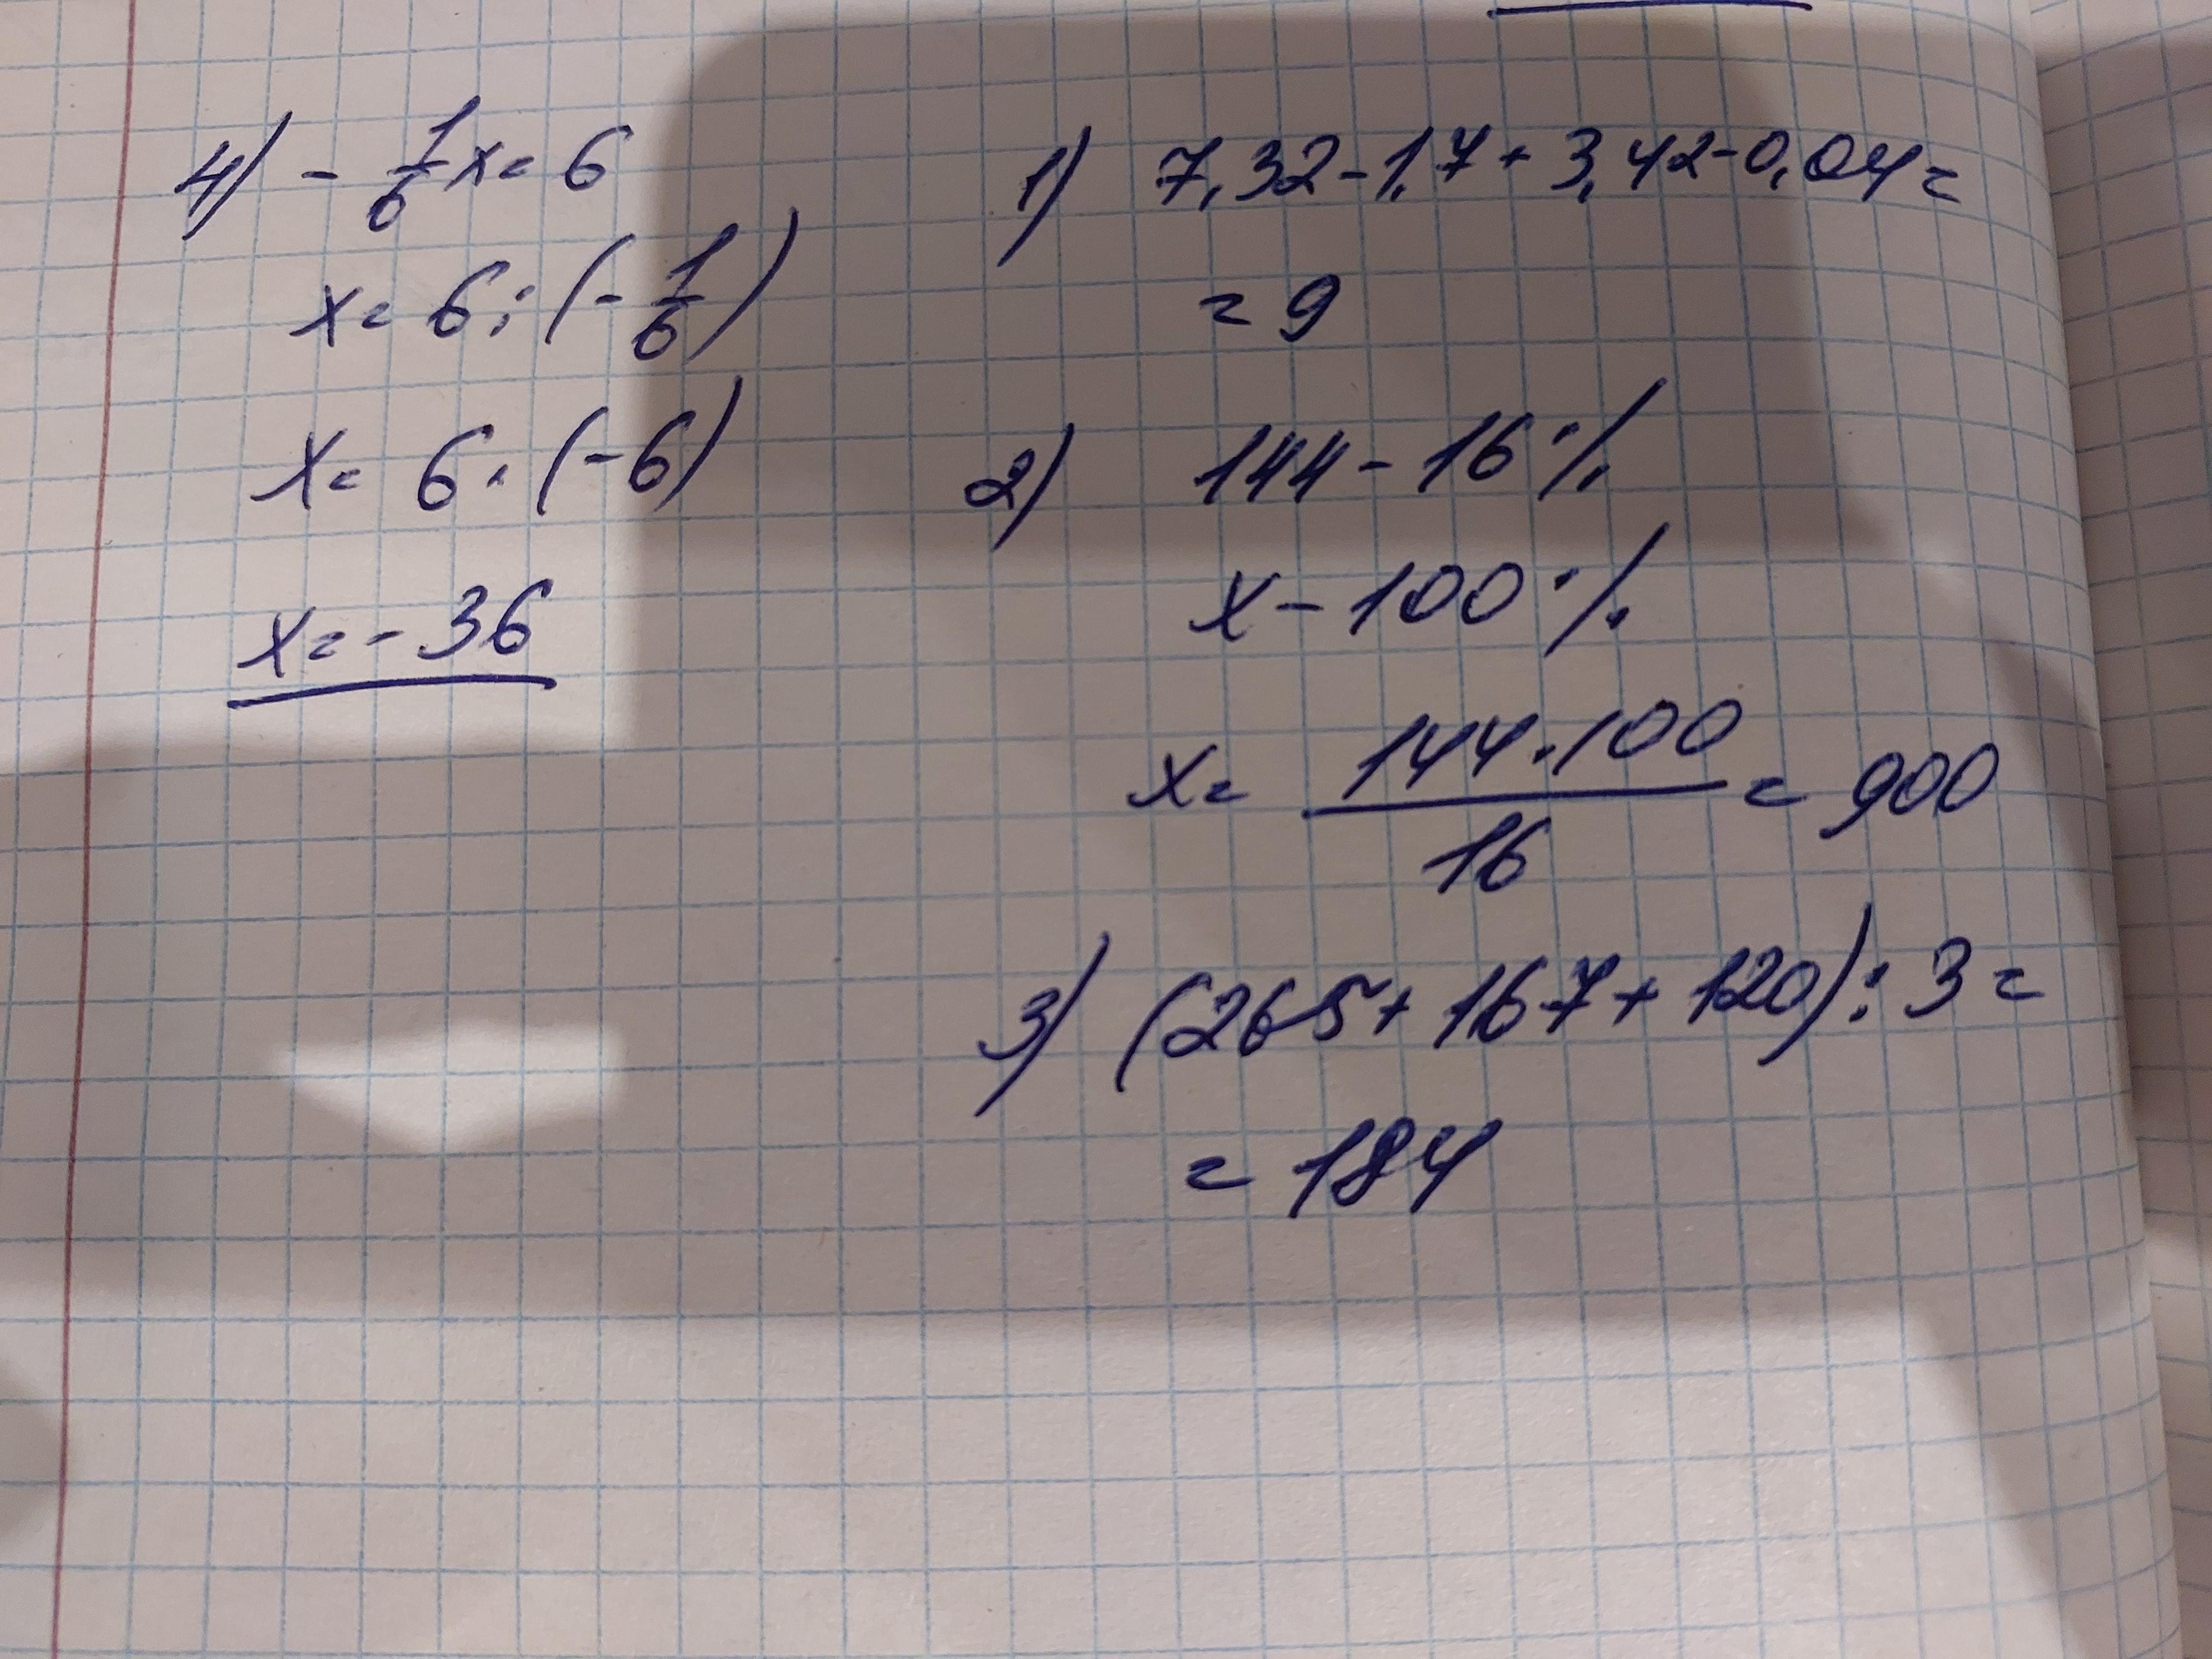 4) - 1/6 x = 6
x = 6 : (- 1/6)
x = 6 · (-6)
x = - 36
1) 7,32 - 1,7 + 3,42 - 0,04 =
= 9
2) 144 - 16 %
x - 100 %
x = 144 · 100 / 16 = 900
3) (265 + 167 + 120) : 3 =
= 184